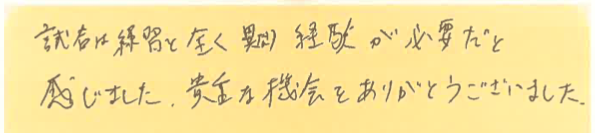 試合は練習と全く異り 経験が必要だと
感じました。貴重な機会をありがとうございました。